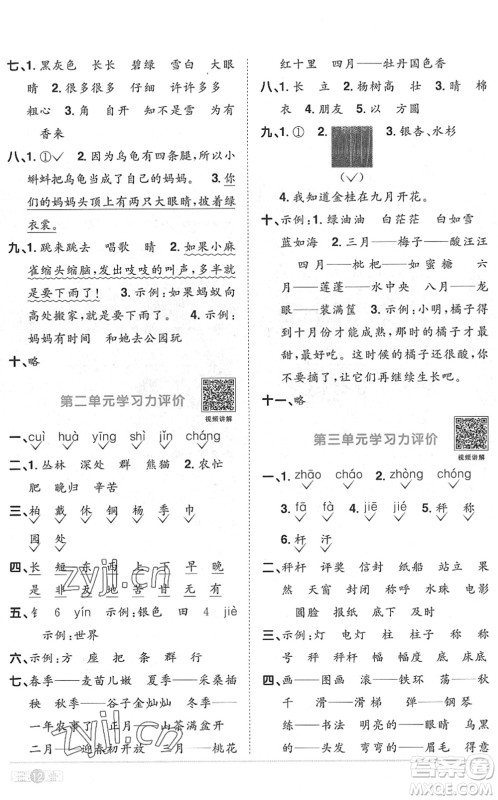 七、1. 黑灰色 长长 碧绿 雪白 大眼
睛 2. 很多很多 仔细 许许多多
粗心 3. 角 自开 知不是雪 为有
香来
八、1. ① ✓ 2. 因为乌龟有四条腿,所以小
蝌蚪把乌龟当成了自己的妈妈。 3. 示例:
你们的妈妈头顶上有两只大眼睛,披着绿
衣裳。
九、1. 跳来跳去 唱歌 晴 2. 如果小麻
雀缩头缩脑,发出吱吱的叫声,多半就
是要下雨了! 3. 示例:如果蚂蚁向
高处搬家,就是要下雨了。 4. 示例:
妈妈有时间 和她去公园玩
十、略
第二单元学习力评价
视频讲解
一、cuì huà yīng shì jìn cháng
二、1. 丛林 深处 群 熊猫 2. 农忙
肥 晚归 辛苦
三、柏 戴 孔 铜 杨 季 巾
园 处
四、长 短 东 西 上 下 早 晚
是 非
五、钅 6 yín 示例:银色 田 4 jiè
示例:世界
六、示例:方 座 把 条 群 行
七、春季——麦苗儿嫩 夏季——采桑插
秧 秋季——谷子金灿灿 冬季——
一年农事了 正月——山茶满盆开
二月——迎春初开放 三月——桃花
红十里 四月——牡丹国色香
八、1. 长 立 2. 杨树高 壮 3. 晴 棉
衣 4. 朋友 5. 以 方圆
九、1. ① 2. 3. 银杏、水杉
(✓)
4. 我知道金桂在九月开花。
十、示例:1. 绿油油 白茫茫 白如雪
蓝如海 2. 三月——梅子——酸汪汪
四月——枇杷——如蜜糖 六
月——莲蓬——水中央 八月——枣
儿——装满筐 3. 示例:小明,橘子得
到十月份的时候才成熟,那时橘子才最
甜,最好吃。你现在摘的橘子还很酸,你
不要摘了,让它们再继续生长吧。
十一、略
第三单元学习力评价
视频讲解
一、1. zhāo cháo 2. zhòng chóng
3. fā fà 4. jiē jié
5. 秤 称 6. 杆 汗
二、秤杆 评奖 信封 纸船 娟 处 果
然 天窗 和平 称呼 水珠 电影
圆脸 报纸 底下 难受
三、示例:灯 电灯 柱 柱子 称 称
号 幅 一幅 评 评价 床 床
四、画——图画 滚——铁环 荡——秋
千 滑——滑梯 弹——钢琴
练——书法 明亮的——眼睛 乌黑
的——头发 弯弯的——眉毛 得意
二 12 业
zyjl.cn
zyjl.cn